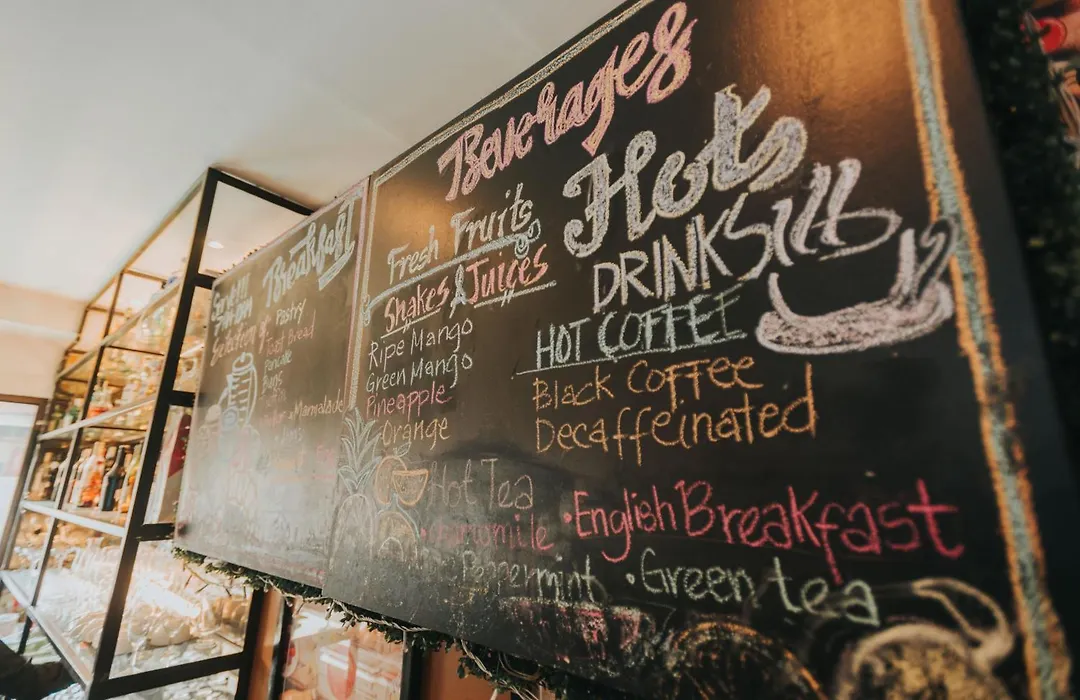 Breakfast
Selection of Pastry
Bread
Pancake
Buns
Marmalade
Beverages
Fresh Fruits
Shakes & Juices
Ripe Mango
Green Mango
Pineapple
Orange
Hots
DRINKS
HOT COFFEE
Black Coffee
Decaffeinated
Hot Tea
•English Breakfast
Peppermint •Green tea